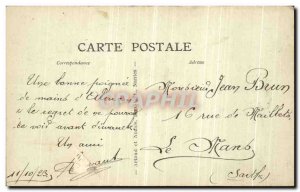 CARTE POSTALE
Correspondance
Adresse
Une bonne poignée
de mains d'
& le regret de ne pouvoir
te voir avant dimanche
Un ami
11/10/03
Monsieur Jean Brun
16 rue de Maillets
Le Mans
Sarthe